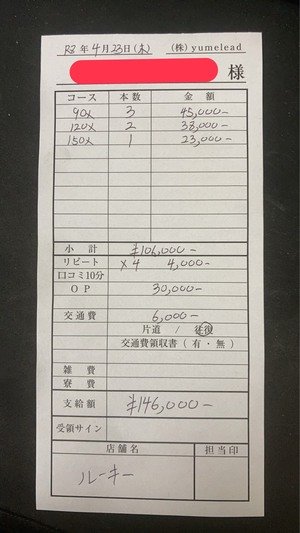 R8年4月23日(木) (株)yumelead
様
コース 本数 金額
90分 3 45,000-
120分 2 38,000-
150分 1 23,000-
小計 ¥106,000-
リピート ×4 4,000-
口コミ10分
OP 30,000-
交通費 6,000-
片道 / 往復
交通費領収書(有・無)
雑費
寮費
支給額 ¥146,000-
受領サイン
店舗名 担当印
ルーキー